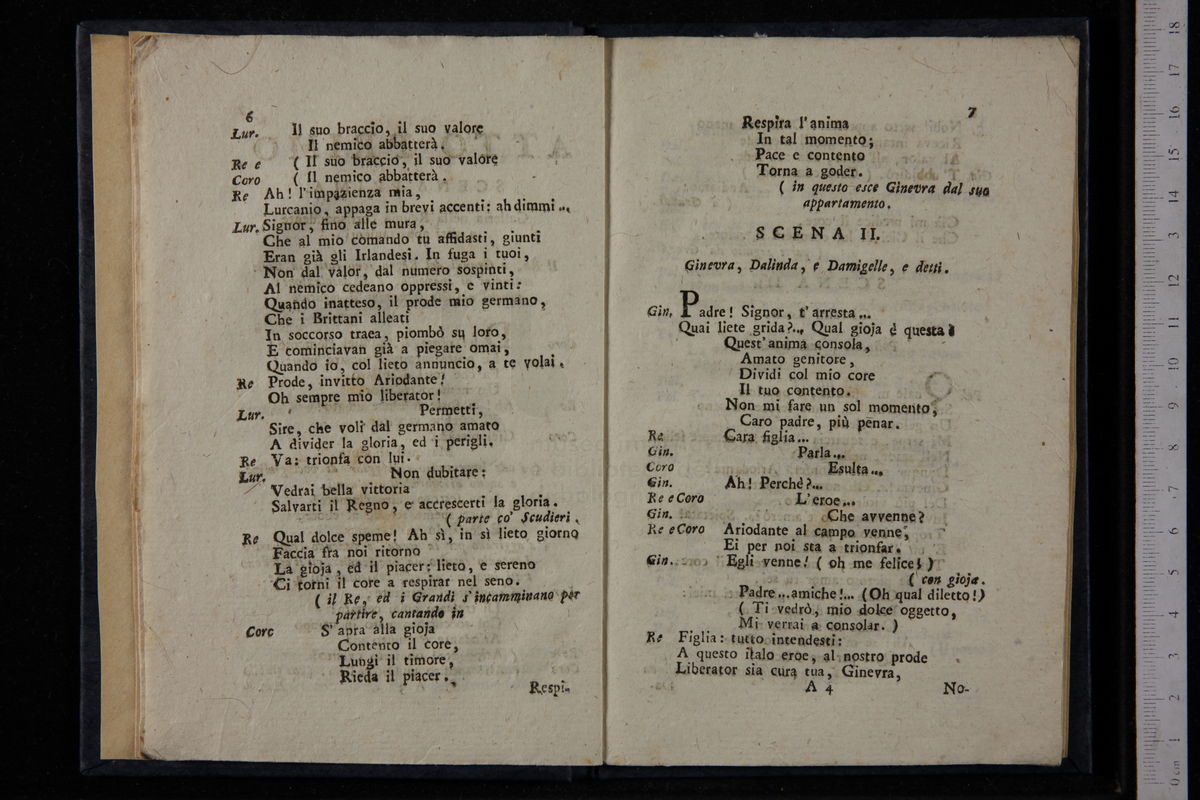 6
Lur. Il suo braccio, il suo valore
Il nemico abbatterà.
Re e ( Il suo braccio, il suo valore
Coro ( Il nemico abbatterà.
Re Ah! l'impazienza mia,
Lurcanio, appaga in brevi accenti: ah dimmi...
Lur. Signor, fino alle mura,
Che al mio comando tu affidasti, giunti
Eran già gli Irlandesi. In fuga i tuoi,
Non dal valor, dal numero sospinti,
Al nemico cedeano oppressi, e vinti:
Quando inatteso, il prode mio germano,
Che i Brittani alleati
In soccorso traea, piombò su loro,
E cominciavan già a piegare omai,
Quando io, col lieto annuncio, a te volai.
Re Prode, invitto Ariodante!
Oh sempre mio liberator!
Lur. Permetti,
Sire, che voli dal germano amato
A divider la gloria, ed i perigli.
Re Va: trionfa con lui.
Lur. Non dubitare:
Vedrai bella vittoria
Salvarti il Regno, e accrescerti la gloria.
( parte co' Scudieri.
Re Qual dolce speme! Ah sì, in sì lieto giorno
Faccia fra noi ritorno
La gioja, ed il piacer: lieto, e sereno
Ci torni il core a respirar nel seno.
( il Re, ed i Grandi s'incamminano per
partire, cantando in
Coro S'apra alla gioja
Contento il core,
Lungi il timore,
Rieda il piacer.
Respi-
7
Respira l'anima
In tal momento;
Pace e contento
Torna a goder.
( in questo esce Ginevra dal suo
appartamento.
SCENA II.
Ginevra, Dalinda, e Damigelle, e detti.
Gin. Padre! Signor, t'arresta...
Quai liete grida?... Qual gioja è questa?
Quest'anima consola,
Amato genitore,
Dividi col mio core
Il tuo contento.
Non mi fare un sol momento,
Caro padre, più penar.
Re Cara figlia...
Gin. Parla...
Coro Esulta...
Gin. Ah! Perchè?...
Re e Coro L'eroe...
Gin. Che avvenne?
Re e Coro Ariodante al campo venne,
Ei per noi sta a trionfar.
Gin. Egli venne! ( oh me felice! )
( con gioja.
Padre...amiche!... (Oh qual diletto!)
( Ti vedrò, mio dolce oggetto,
Mi verrai a consolar. )
Re Figlia: tutto intendesti:
A questo italo eroe, al nostro prode
Liberator sia cura tua, Ginevra,
A 4 No-
18
17
16
15
14
13
12
11
10
9
8
7
6
5
4
3
2
1
0 cm